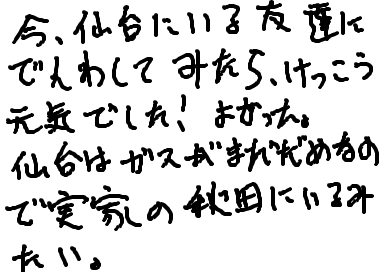 今、仙台にいる友達に
でんわしてみたら、けっこう
元気でした！よかった。
仙台はガスがまだだめなの
で実家の秋田にいるみ
たい。